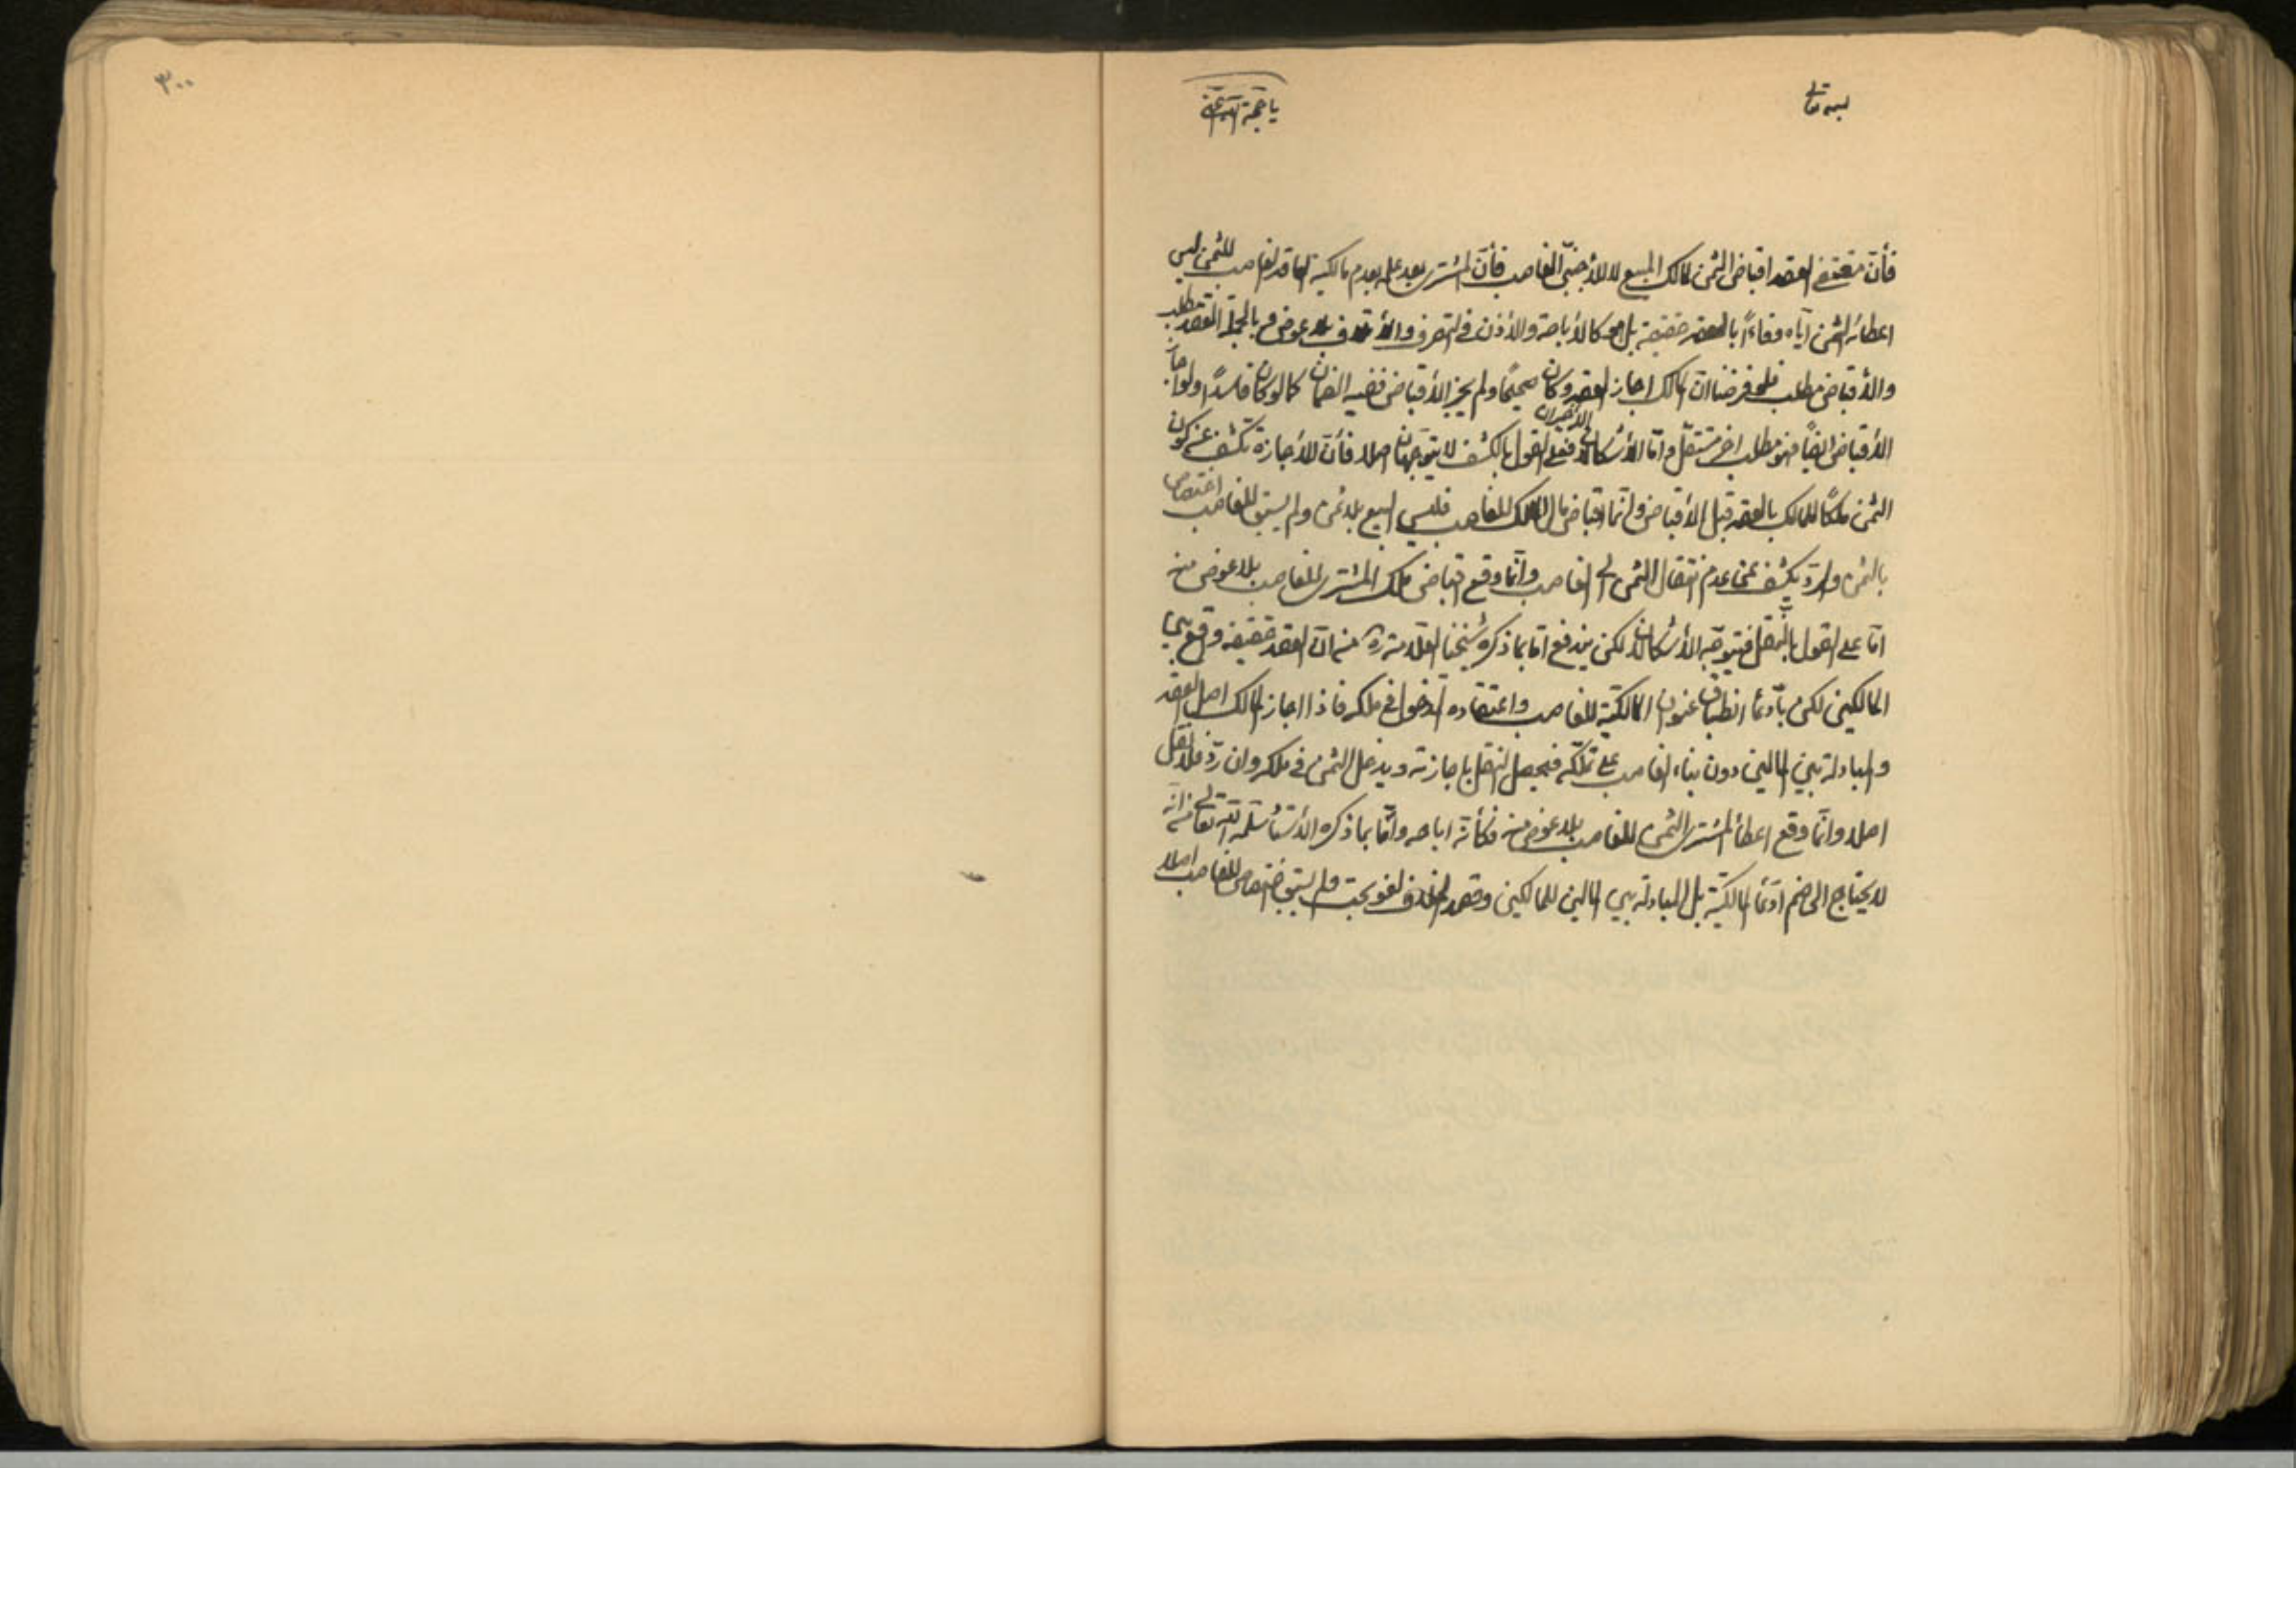 بسمه تعالی
یا حجة الله
۳۰۰
فأنّ مقتضی العقد اقباض الثمن لمالک المبیع لا للأجنبیّ الغاصب فأنّ المشتری بعد علمه بعدم مالکیة العاقد الغاصب للثمن لیس
اعطائه الثمن ایّاه وفاءاً بالعقد حقیقة بل هو کالأباحة والأذن فی التصرف والأتلاف بلا عوض و بالجملة العقد مطلب
والأقباض مطلب فلو فرضنا انّ المالک اجاز العقد وکان صحیحًا ولم یجز الأقباض ففیه الضمان کما لو کان فاسدًا ولو اجاز
الأقباض ایضًا فهو مطلب اخر مستقلّ وامّا الأشکالان الأخیران فعلی القول بالکشف لا یتوجّهان اصلا فأنّ الأجازة تکشف عن کون
الثمن ملکًا للمالک بالعقد قبل الأقباض وانّما اقباض مال المالک للغاصب فلیس البیع بلا ثمن ولم یسبق للغاصب اختصاص
بالثمن والردّ یکشف عن عدم انتقال الثمن الی الغاصب وانّما وقع اقباض ملک المشتری للغاصب بلا عوض منه
امّا علی القول بالنقل فیتوجّه الأشکالان لکن یندفع امّا بما ذکره شیخنا العلّامة ره من انّ العقد حقیقة وقع بین
المالکین لکن بأدّعاء انطباق عنوان المالکیّة للغاصب واعتقاده الدخول فی ملکه فاذا اجاز المالک اصل العقد
والمبادلة بین المالین دون بناء الغاصب علی تملّکه فیحصل النقل باجازته ویدخل الثمن فی ملکه وان ردّ فلا نقل
اصلا وانّما وقع اعطاء المشتری الثمن للغاصب بلا عوض منه فکأنّه اباحه وامّا بما ذکره الأستاد سلّمه الله تعالی من انّه
لا یحتاج الی ضم ادّعاء المالکیّة بل المبادلة بین المالین للمالکین وقصد الخلاف لغو بحت ولم یسبق اختصاص للغاصب اصلا